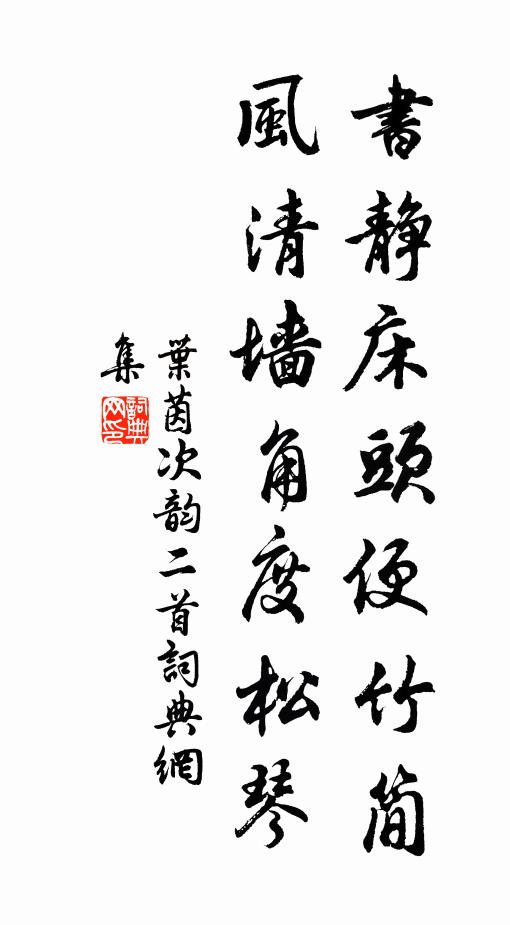 書静床頭便竹簡
風清墙角度松琴
葉茵次韵二首詞典網
集
詞典網印